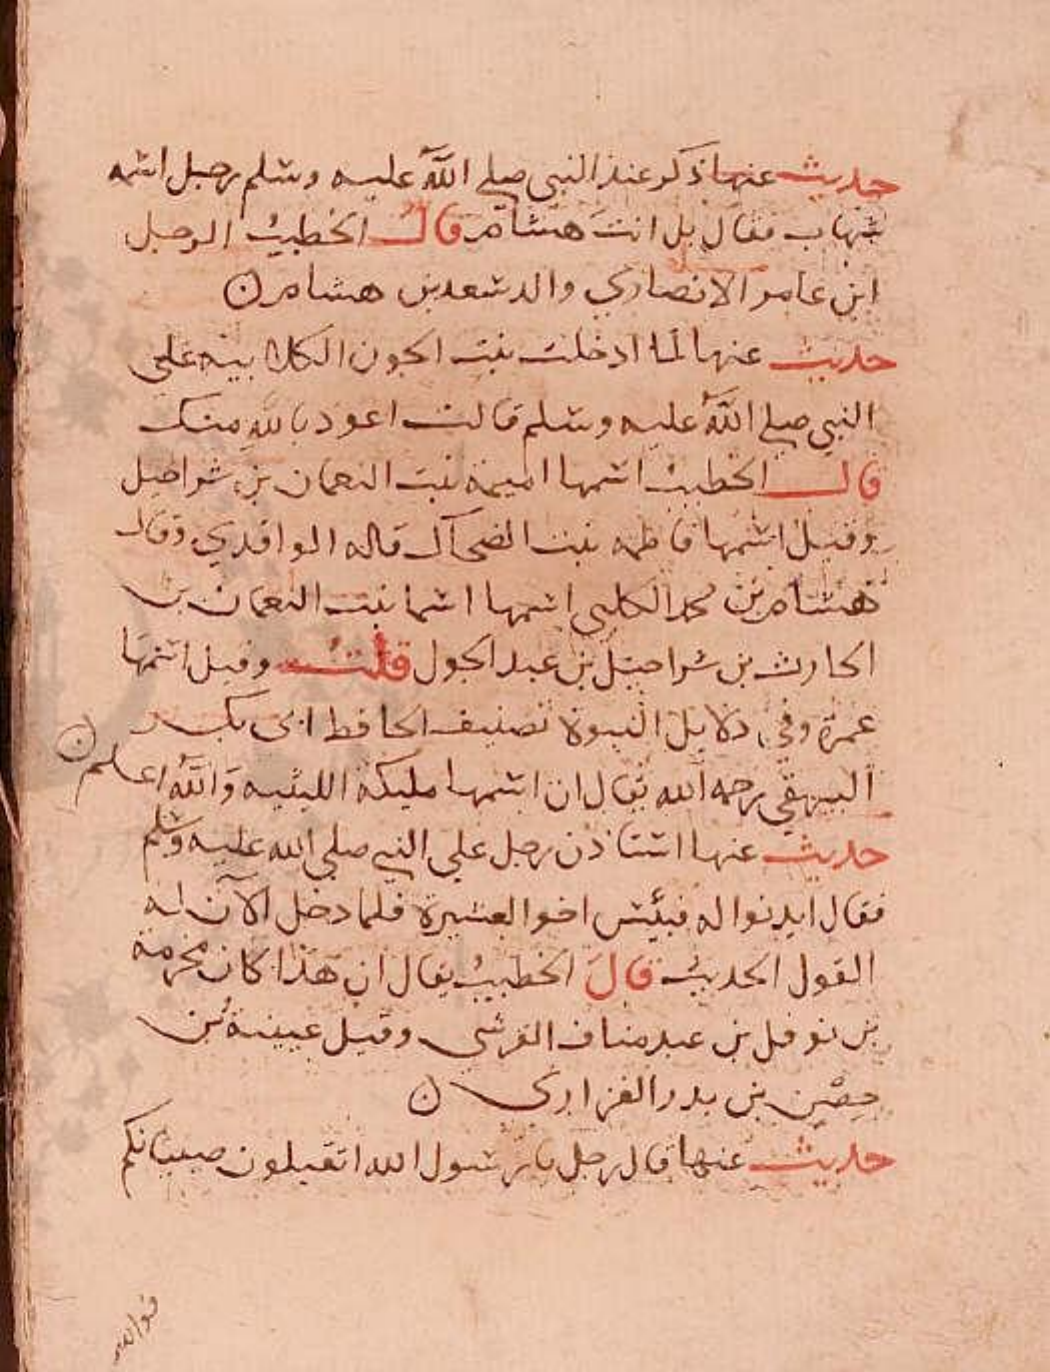 حديث عنها ذكر عند النبي صلي الله عليه وسلم رجل اسمه
شهاب فقال بل انت هشام قال الخطيب الرجل
ابن عامر الانصاري والد سعد بن هشام ن
حديث عنها لما ادخلت بنت الجون الكلابيه علي
النبي صلي الله عليه وسلم قالت اعوذ بالله منك
قال الخطيب اسمها اميمة بنت النعمان بن شراحيل
وقيل اسمها فاطمه بنت الضحاك قاله الواقدي وقال
هشام بن محمد الكلبي اسمها اسما بنت النعمان بن
الحارث بن شراحيل بن عبد الجول قلت وقيل اسمها
عمرة وفي دلايل النبوة تصنيف الحافظ ابي بكر
البيهقي رحمه الله يقال ان اسمها مليكة الليثيه والله اعلم ن
حديث عنها استاذن رجل علي النبي صلي الله عليه وسلم
فقال ايذنوا له فبئس اخوا العشيرة فلما دخل الآن له
القول الحديث قال الخطيب يقال ان هذا كان مخرمة
بن نوفل بن عبد مناف القرشي وقيل عيينة بن
حصن بن بدر الفزاري ن
حديث عنها قال رجل يا رسول الله اتقبلون صبيانكم
فوالله